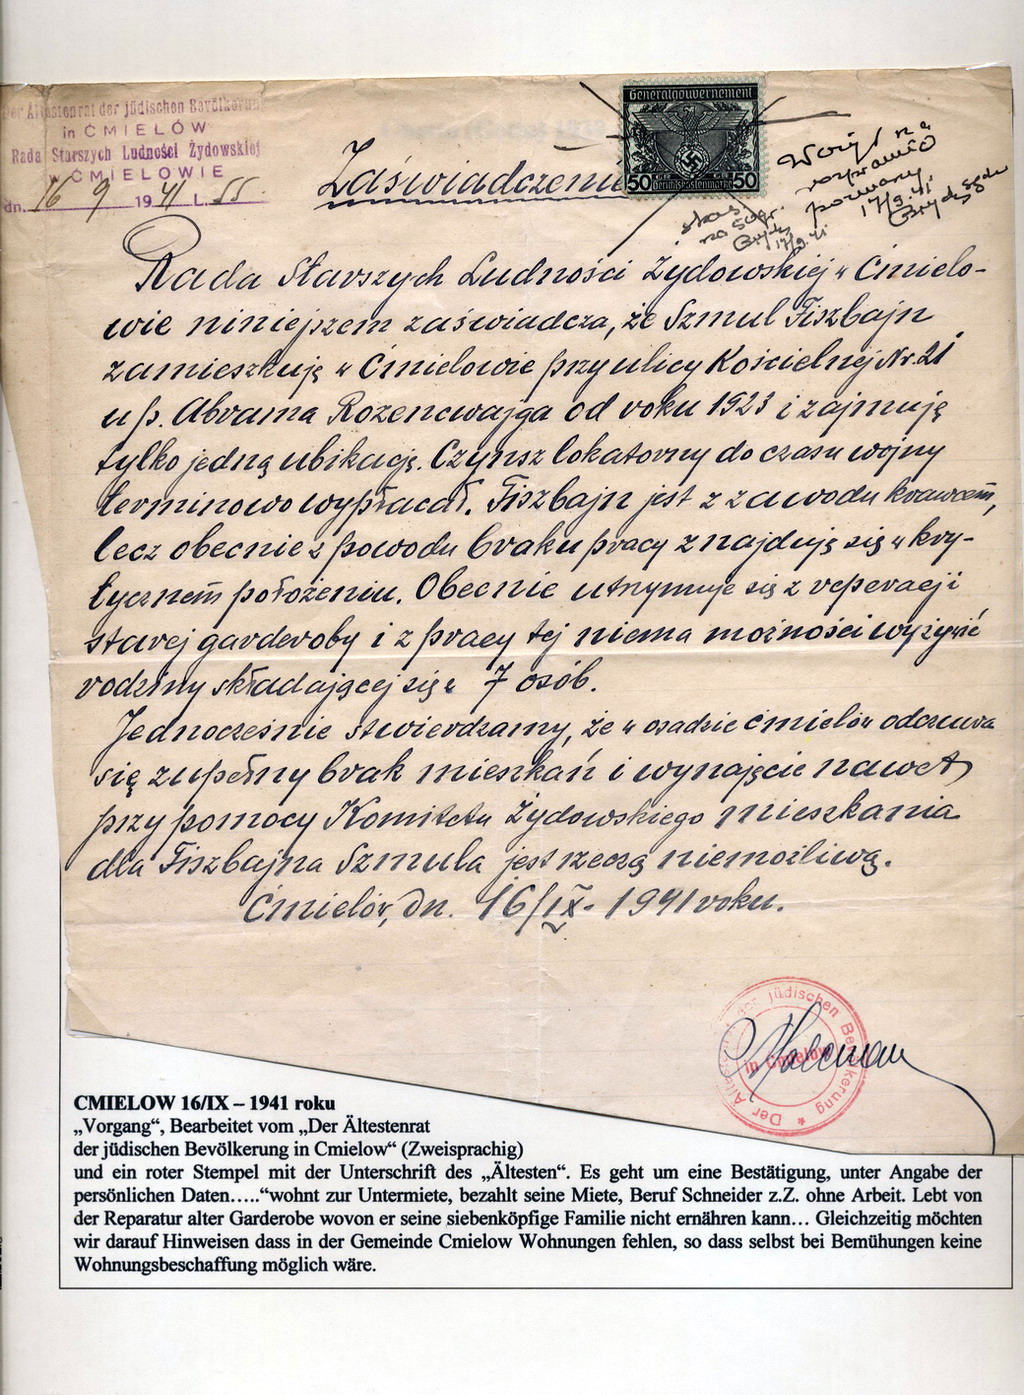 Der Ältestenrat der jüdischen Bevölkerung
in ĆMIELÓW
Rada Starszych Ludności Żydowskiej
w ĆMIELOWIE
dn. 16 9 1941 L. 55.
Zaświadczenie
Generalgouvernement
50 Gerichtskostenmarke 50
Wożył na
rozprawie
pozwany
17/9.41.
skas
na 50 gr.
17/9.41.
Rada Starszych Ludności Żydowskiej w Ćmielo-
wie niniejszem zaświadcza, że Szmul Fiszbajn
zamieszkuję w Ćmielowie przy ulicy Kościelnej Nr. 21
u p. Abrama Rozencwajga od roku 1923 i zajmuję
tylko jedną ubikację. Czynsz lokatorny do czasu wojny
terminowo wypłacał. Fiszbajn jest z zawodu krawcem,
lecz obecnie z powodu braku pracy znajduję się w kry-
tycznem położeniu. Obecnie utrzymuje się z reperacji
starej garderoby i z pracy tej niema możności wyżywić
rodziny składającej się z 7 osób.
Jednocześnie stwierdzamy, że w osadzie Ćmielów odczuwa
się zupełny brak mieszkań i wynajęcie nawet
przy pomocy Komitetu Żydowskiego mieszkania
dla Fiszbajna Szmula jest rzeczą niemożliwą.
Ćmielów, dn. 16/IX - 1941 roku.
Der Ältestenrat der jüdischen Bevölkerung
in Cmielów
CMIELOW 16/IX – 1941 roku
„Vorgang“, Bearbeitet vom „Der Ältestenrat
der jüdischen Bevölkerung in Cmielow“ (Zweisprachig)
und ein roter Stempel mit der Unterschrift des „Ältesten“. Es geht um eine Bestätigung, unter Angabe der
persönlichen Daten…..“wohnt zur Untermiete, bezahlt seine Miete, Beruf Schneider z.Z. ohne Arbeit. Lebt von
der Reparatur alter Garderobe wovon er seine siebenköpfige Familie nicht ernähren kann… Gleichzeitig möchten
wir darauf Hinweisen dass in der Gemeinde Cmielow Wohnungen fehlen, so dass selbst bei Bemühungen keine
Wohnungsbeschaffung möglich wäre.